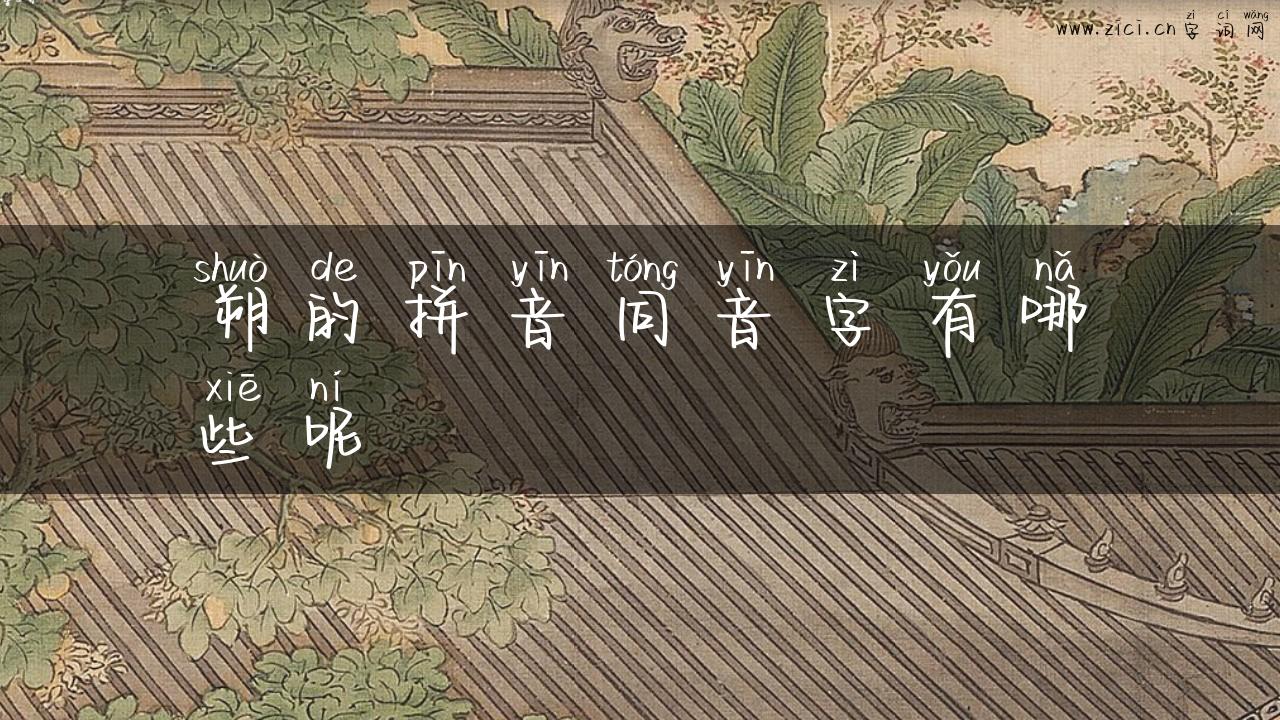 zì cí wǎng
www.zici.cn 字词网
shuò de pīn yīn tóng yīn zì yǒu nǎ
朔的拼音同音字有哪
xiē ní
些呢